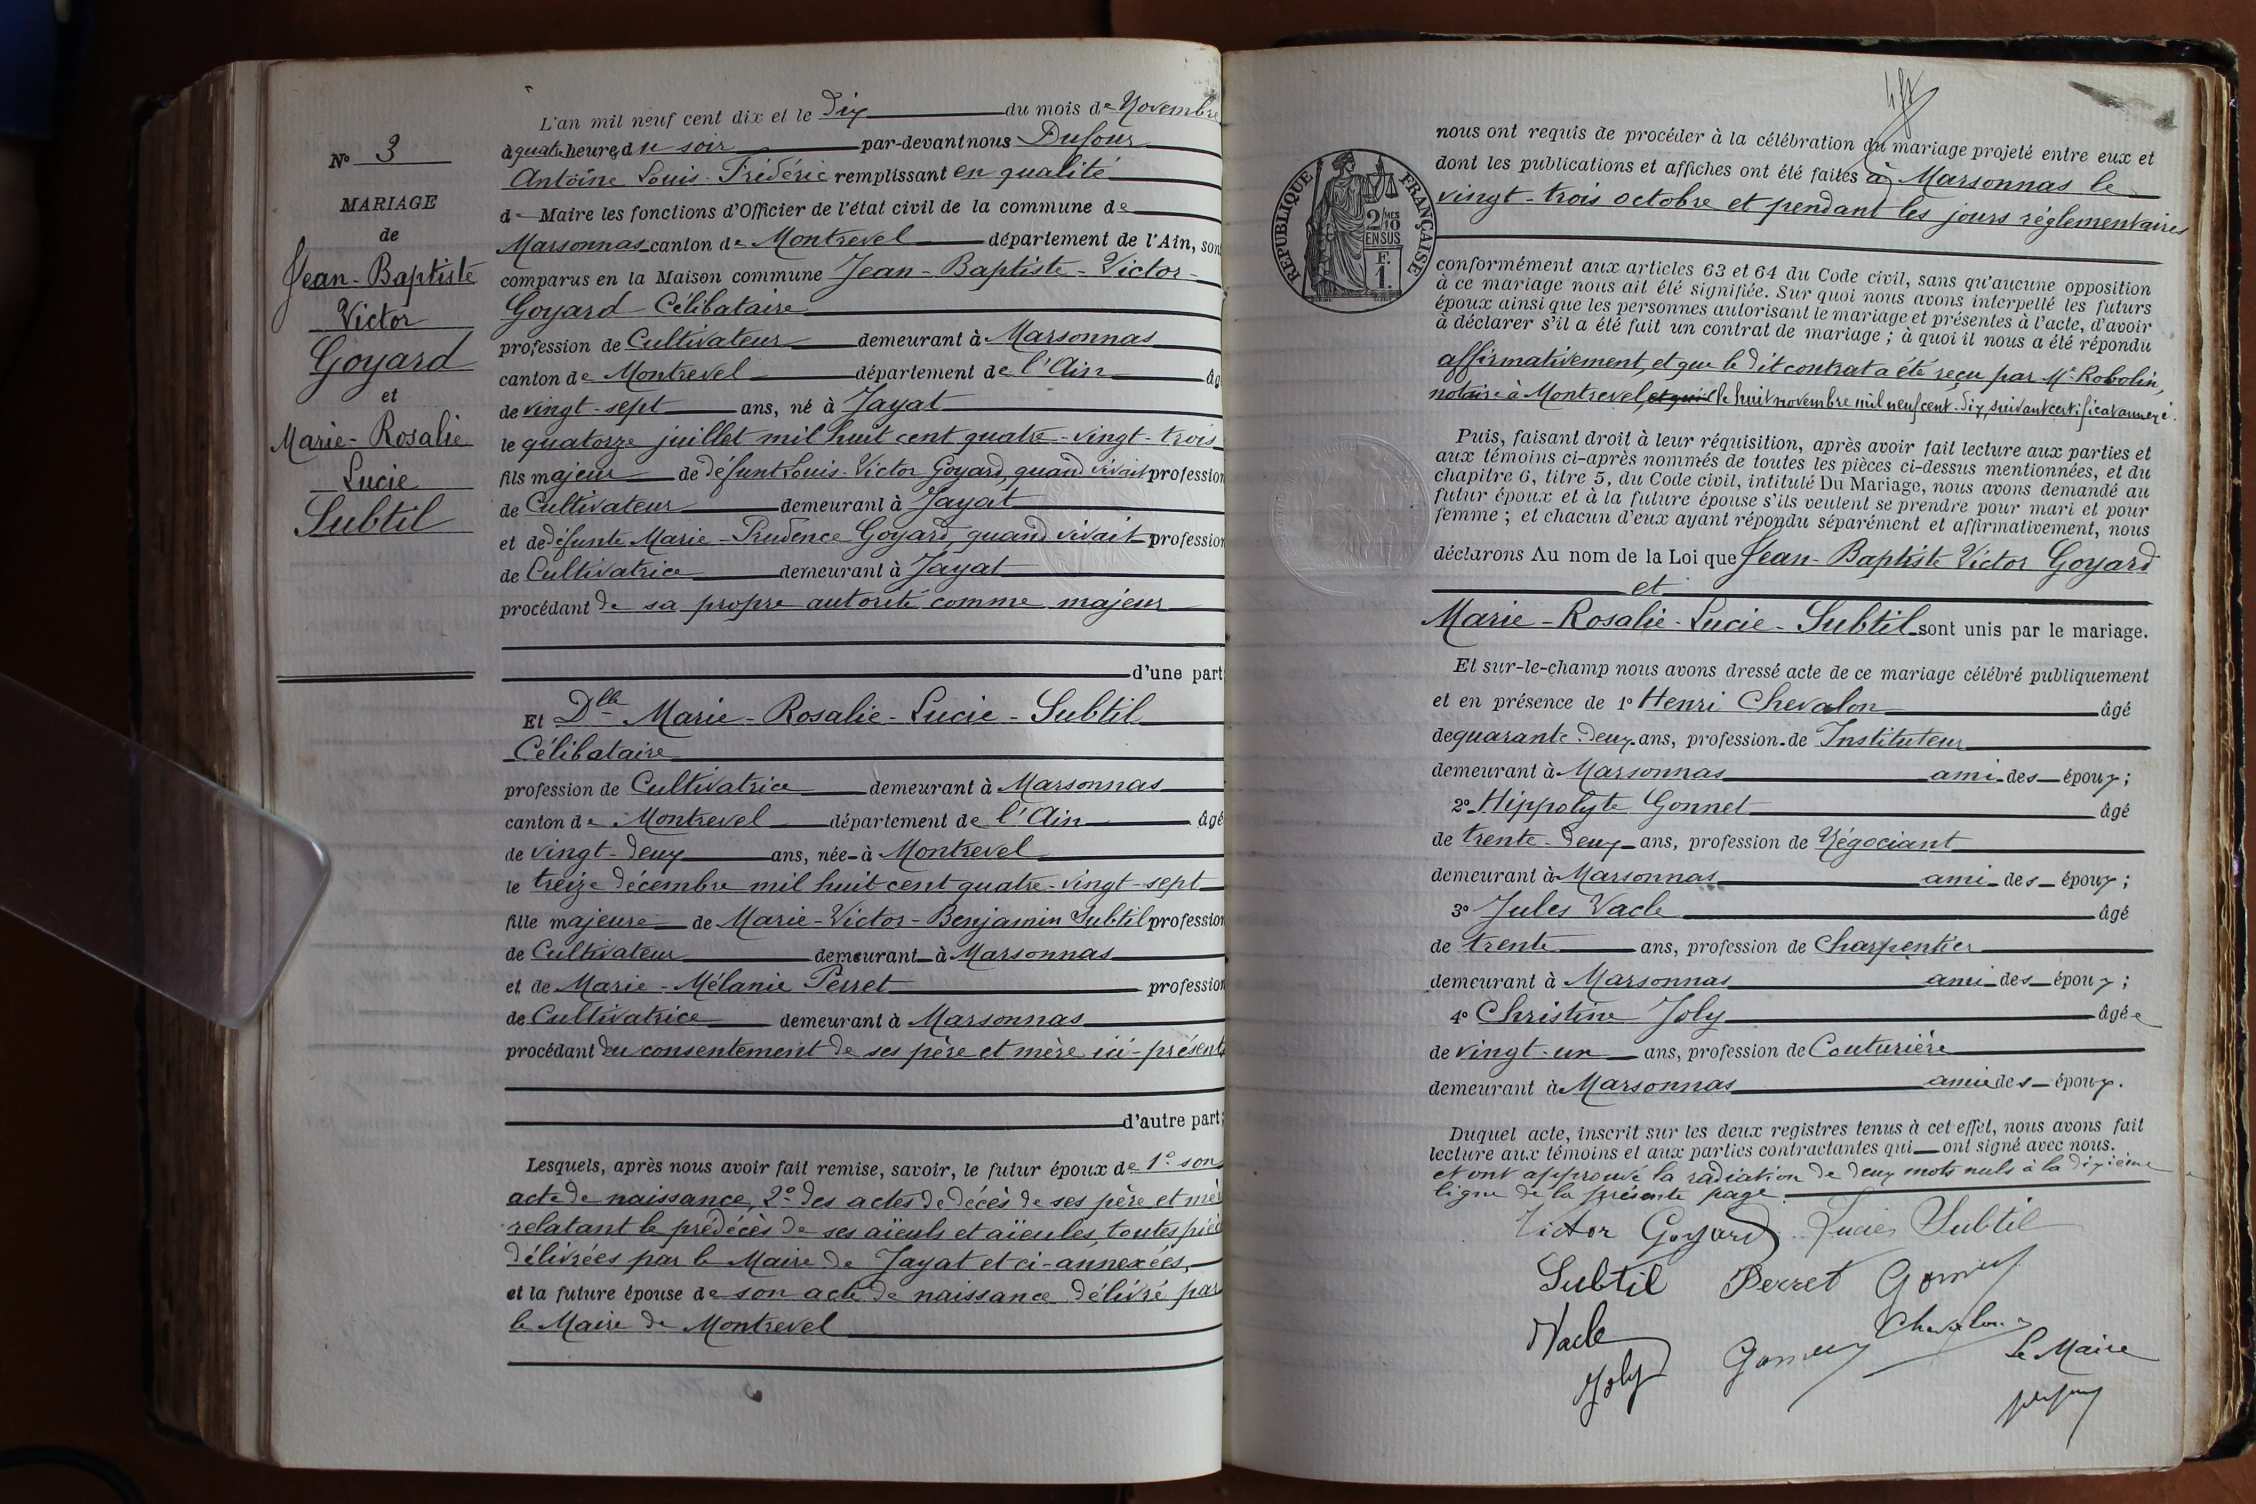 N° 3
MARIAGE
de
Jean-Baptiste
Victor
Goyard
et
Marie-Rosalie
Lucie
Subtil
L'an mil neuf cent dix et le dix du mois de Novembre
à quatre heures du soir par-devant nous Dufour
Antoine Louis-Frédéric remplissant en qualité
de Maire les fonctions d'Officier de l'état civil de la commune de
Marsonnas canton de Montrevel département de l'Ain, son
comparus en la Maison commune Jean-Baptiste-Victor-
Goyard Célibataire
profession de Cultivateur demeurant à Marsonnas
canton de Montrevel département de l'Ain âg
de vingt-sept ans, né à Jayat
le quatorze juillet mil huit cent quatre-vingt-trois
fils majeur de défunt Louis-Victor Goyard, quand vivait profession
de Cultivateur demeurant à Jayat
et de défunte Marie-Prudence Goyard, quand vivait profession
de Cultivatrice demeurant à Jayat
procédant de sa propre autorité comme majeur
d'une part;
Et Dlle Marie-Rosalie-Lucie-Subtil
Célibataire
profession de Cultivatrice demeurant à Marsonnas
canton de Montrevel département de l'Ain âgé
de vingt-deux ans, née à Montrevel
le treize décembre mil huit cent quatre-vingt-sept
fille majeure de Marie-Victor-Benjamin Subtil profession
de Cultivateur demeurant à Marsonnas
et de Marie-Mélanie Perret profession
de Cultivatrice demeurant à Marsonnas
procédant du consentement de ses père et mère ici-présents
d'autre part;
Lesquels, après nous avoir fait remise, savoir, le futur époux de 1° son
acte de naissance, 2° des actes de décès de ses père et mèr
relatant le prédécès de ses aïeuls et aïeules, toutes pièc
délivrées par le Maire de Jayat et ci-annexées,
et la future épouse de son acte de naissance délivré par
le Maire de Montrevel
RÉPUBLIQUE FRANÇAISE
2/MES
10
EN SUS
F.
1.
nous ont requis de procéder à la célébration du mariage projeté entre eux et
dont les publications et affiches ont été faites à Marsonnas le
vingt-trois octobre et pendant les jours réglementaires
conformément aux articles 63 et 64 du Code civil, sans qu'aucune opposition
à ce mariage nous ait été signifiée. Sur quoi nous avons interpellé les futurs
époux ainsi que les personnes autorisant le mariage et présentes à l'acte, d'avoir
à déclarer s'il a été fait un contrat de mariage ; à quoi il nous a été répondu
affirmativement, et que le dit contrat a été reçu par Me Robolin,
notaire à Montrevel, et qui le huit novembre mil neuf cent-dix, suivant certificat annexé.
Puis, faisant droit à leur réquisition, après avoir fait lecture aux parties et
aux témoins ci-après nommés de toutes les pièces ci-dessus mentionnées, et du
chapitre 6, titre 5, du Code civil, intitulé Du Mariage, nous avons demandé au
futur époux et à la future épouse s'ils veulent se prendre pour mari et pour
femme ; et chacun d'eux ayant répondu séparément et affirmativement, nous
déclarons Au nom de la Loi que Jean-Baptiste Victor Goyard
et
Marie-Rosalie-Lucie-Subtil sont unis par le mariage.
Et sur-le-champ nous avons dressé acte de ce mariage célébré publiquement
et en présence de 1° Henri Chevalon âgé
de quarante-deux ans, profession de Instituteur
demeurant à Marsonnas ami des époux;
2° Hippolyte Gonnet âgé
de trente-deux ans, profession de Négociant
demeurant à Marsonnas ami des époux;
3° Jules Vacle âgé
de trente ans, profession de Charpentier
demeurant à Marsonnas ami des époux;
4° Christine Joly âgée
de vingt-un ans, profession de Couturière
demeurant à Marsonnas amie des époux.
Duquel acte, inscrit sur les deux registres tenus à cet effet, nous avons fait
lecture aux témoins et aux parties contractantes qui ont signé avec nous.
et ont approuvé la radiation de deux mots nuls à la dixième
ligne de la présente page.
Victor Goyard Lucie Subtil
Subtil Perret
Vacle Chevalon
Joly Le Maire